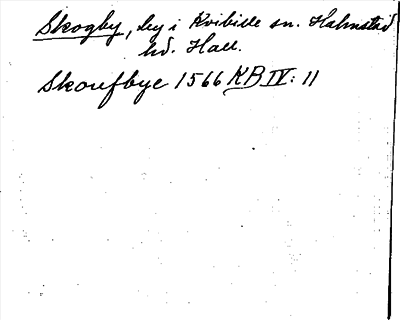 Skogby, by i Kvibille sn. Halmstad
hd. Hall.
Skoufbye 1566 KB IV: 11